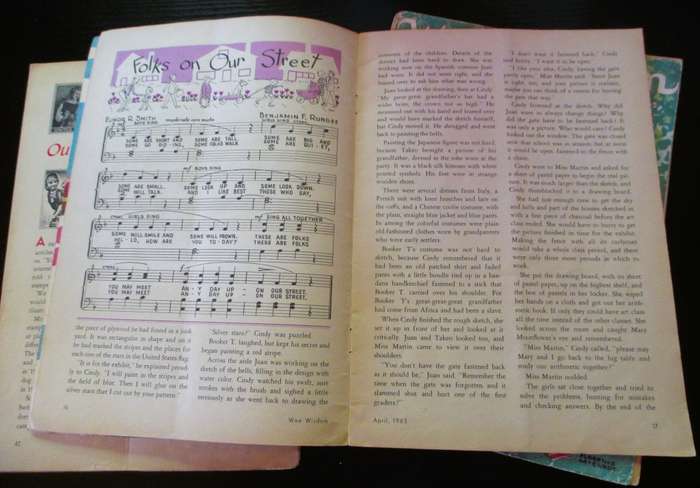 Folks on Our Street
ELINOR R. SMITH
moderate two beats
BENJAMIN F. RUNGEE
BOYS SING
GIRLS SING
SOME ARE SHORT AND SOME ARE TALL, SOME ARE BIG AND
SOME GO SOME FOLKS WALK SOME ARE
BOYS SING
SOME ARE SMALL. SOME LOOK UP AND SOME LOOK DOWN.
WILL TALK. AND I LIKE BEST THOSE WHO SAY,
GIRLS SING
mf SING ALL TOGETHER
SOME WILL SMILE AND SOME WILL FROWN. THESE ARE FOLKS
HEL-LO, HOW ARE YOU TO-DAY? THESE ARE FOLKS
YOU MAY MEET AN-Y DAY UP-ON OUR STREET.
YOU MAY MEET AN-Y DAY UP-ON OUR STREET.
the piece of plywood he had found in a junk
yard. It was rectangular in shape and on it
he had marked the stripes and the places for
each one of the stars in the United States flag.
"It is for the exhibit," he explained proud-
ly to Cindy. "I will paint in the stripes and
the field of blue. Then I will glue on the
silver stars that I cut out by your pattern."
"Silver stars?" Cindy was puzzled.
Booker T. laughed, but kept his secret and
began painting a red stripe.
Across the aisle Juan was working on the
sketch of the bells, filling in the design with
water color. Cindy watched his swift, sure
strokes with the brush and sighed a little
enviously as she went back to drawing the
16
Wee Wisdom
costumes of the children. Details of the
dresses had been hard to draw. She was
working on the Spanish costume Juan
had worn. It did not seem right, and she
turned to ask him what was wrong.
Juan looked at the drawing, then at Cindy.
"My great-great grandfather's hat had a
wider brim, the crown not so high." He
motioned out with his hand and leaned over
and would have marked the sketch himself,
but Cindy moved it. He shrugged and went
back to painting the bells.
Painting the Japanese figure was not hard,
because Takeo brought a picture of his
grandfather, dressed in the robe worn at the
party. It was a black silk kimono with white
printed symbols. His feet were in strange
wooden shoes.
There were several dresses from Italy, a
Persian suit with knee breeches and lace on
the cuffs, and a Chinese coolie costume, with
the plain, straight blue jacket and blue pants.
In among the colorful costumes were plain
old-fashioned clothes worn by grandparents
who were early settlers.
Booker T's costume was not hard to
sketch, because Cindy remembered that it
had been an old patched shirt and faded
pants with a little bundle tied up in a ban-
dana handkerchief fastened to a stick that
Booker T. carried over his shoulder. For
Booker T's great-great-great grandfather
had come from Africa and had been a slave.
When Cindy finished the rough sketch, she
set it up in front of her and looked at it
critically. Juan and Takeo looked too, and
Miss Martin came to view it over their
shoulders.
"You don't have the gate fastened back
as it should be," Juan said. "Remember the
time when the gate was forgotten and it
slammed shut and hurt one of the first
graders?"
"I don't want it fastened back," Cindy
said "I want it to be open."
"One nice idea, Cindy, having the gate
partly open," Miss Martin said. "Since Juan
is right, too, and your picture is realistic,
maybe you can think of a reason for leaving
the gate that way."
Cindy frowned at the sketch. Why did
Juan want to always change things? Why
did the gate have to be fastened back? It
was only a picture. What would
looked out the window. The gate was closed
now that school was in session, but at noon
it would be open, fastened to the fence with
a chain.
Cindy went to Miss Martin and asked for
a sheet of pastel paper to begin the real pic-
ture. It was much larger than the sketch, and
Cindy thumbtacked it to a drawing board.
She had just enough time to get the sky
and bells and part of the houses sketched in
with a fine piece of charcoal before the art
class ended. She would have to hurry to get
the picture finished in time for the exhibit.
Making the fence with all its curlicues
would take a whole class period, and there
were only three more periods in which to
work.
She put the drawing board, with its sheet
of pastel paper, up on the highest shelf, and
the box of pastels in her locker. She wiped
her hands on a cloth and got out her arith-
metic book. If only they could have art class
all the time instead of the other classes. She
looked across the room and caught Mary
Mourflower's eye and remembered.
"Miss Martin," Cindy called, "please may
Mary and I go back to the big table and
study our arithmetic together?"
Miss Martin nodded.
The girls sat close together and tried to
solve the problems, hunting for mistakes
and checking answers. By the end of the
April, 1963
17
Ou
A
47